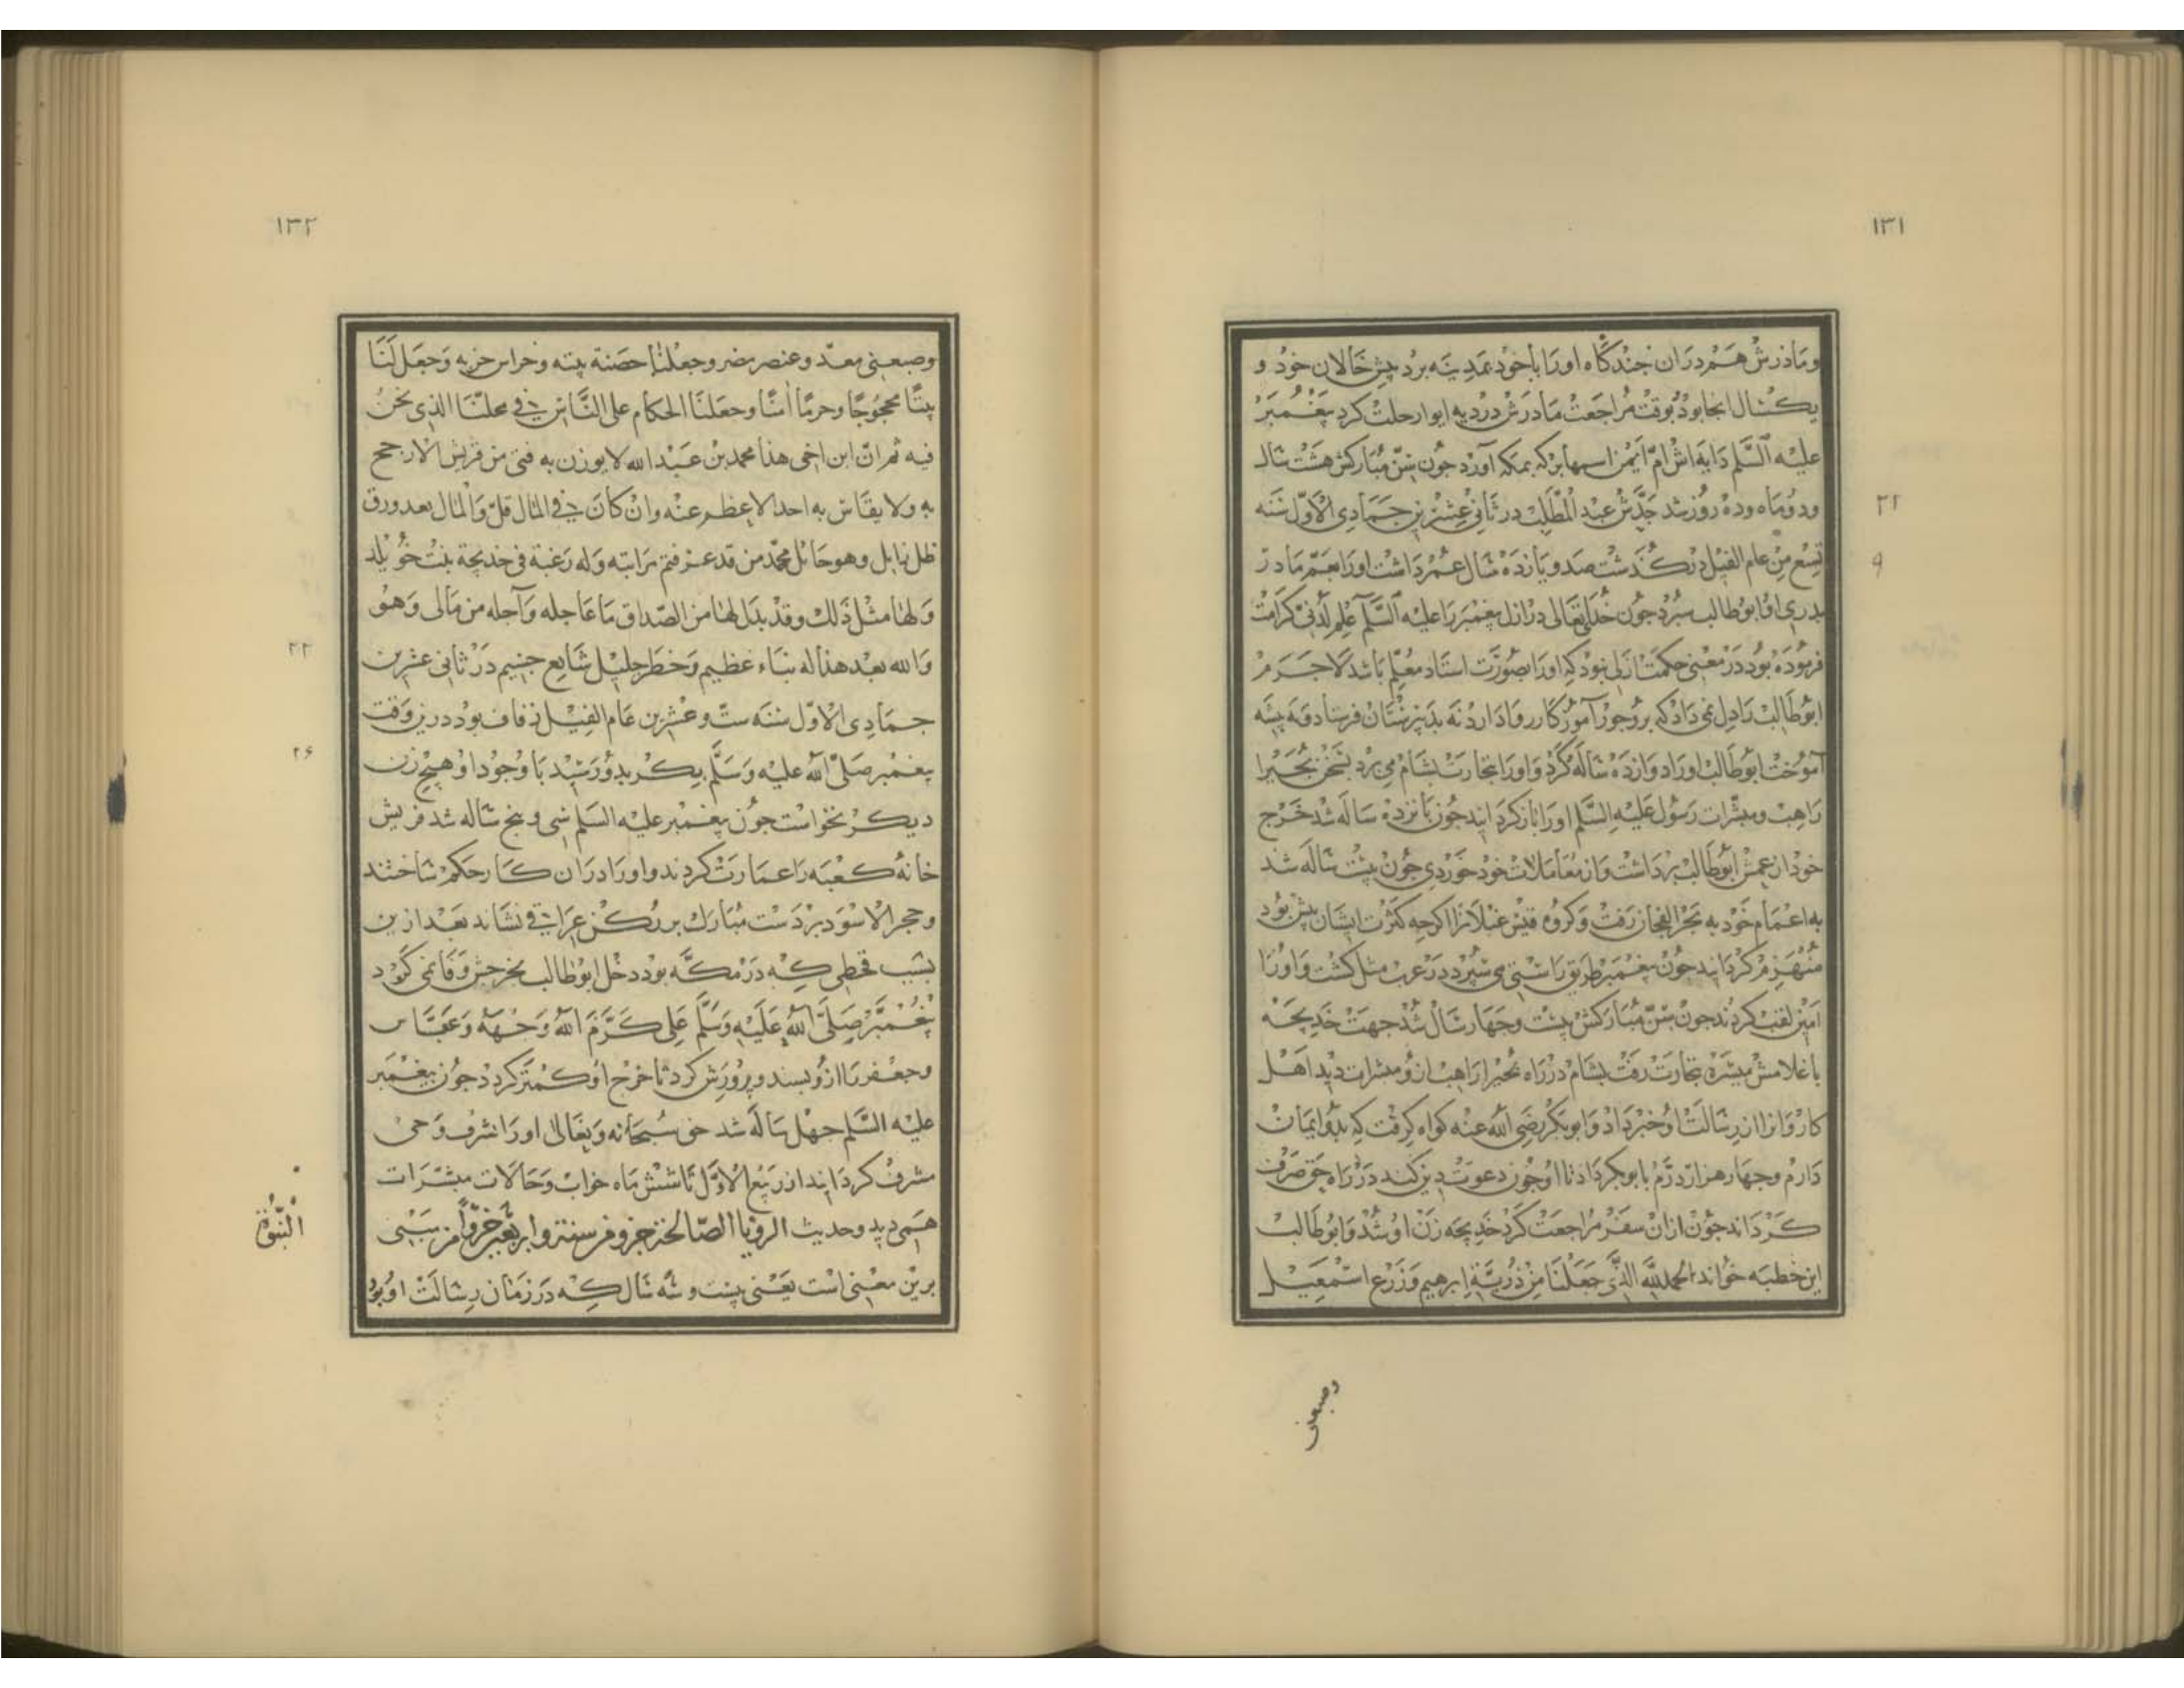 ١٣١
وماذرش هم دران جندگاه اورا باخود بمدینه برد پیش خالان خود و
یکسال انجا بود بوقت مراجعت مادرش در دیه ابوا رحلت کرد پیغمبر
علیه السلم دایه اش امّ ایمن اسمها برکه بمکه آورد جون سنّ مبارکش هشت سال
ودوماه وده روز شد جدّش عبد المطّلب در ثانی عشرین جمادی الاوّل سنه
٢٢
تسع من عام الفیل در گذشت صد و یازده سال عمر داشت اورا بعمّ مادر
٩
پدری او ابوطالب سپرد جون خدای تعالی در ازل پیغمبر را علیه السلم علم لدنی کرامت
فرموده بود در معنی حکمت ازلی نبود که اورا بصورت استاد معلم باشد لاجرم
ابوطالب را دل نمی داد که بروجور آموزکار روا دارد نه بدبیرستان فرستاد و نه پیشه
آموخت ابوطالب اورا دوازده ساله کرد و اورا بتجارت بشام می برد بسخن بحیرا
راهب ومبشرات رسول علیه السلم اورا باز کردانید جون پانزده ساله شد خرج
خود از عمش ابوطالب برداشت واز معاملات خود خوردی جون بیست ساله شد
به اعمام خود به بحر الفجار رفت وکروه قیس عیلانرا اکرجه کثرت ایشان بیش بود
منهزم کردانید جون پیغمبر طریق راستی می سپرد در عرب مثل کشت واورا
امین لقب کردند جون سنّ مبارکش بیست وجهار سال شد جهت خدیجه
با غلامش میسره بتجارت رفت بشام در راه بحیرا راهب ازو مبشرات دید اهل
کاروانرا از رسالت او خبر داد وابوبکر رضی الله عنه کواه کرفت که بدو ایمان
دارم وجهار هزار درم بابوبکر داد تا اوجون دعوت دین کند در راه حق صرف
کرداند جون ازان سفر مراجعت کرد خدیجه زن او شد وابوطالب
این خطبه خواند الحمد لله الذی جعلنا من ذریة ابرهیم وزرع اسمعیل
وصبعنی
١٣٢
وصبعنی معدّ وعنصر مضر وجعلنا حضنة بیته وحراس حزبه وجعل لنا
بیتًا محجوجًا وحرمًا امنًا وجعلنا الحکام علی النّاس فی محلتنا الذی نحن
فیه ثم انّ ابن اخی هذا محمد بن عبد الله لا یوزن به فتی من قریش الارجح
به ولا یقاس به احد الا عظم عنه وان کان فی المال قلّ والمال بعد ورق
ظل زایل وهو حائل محمد من قد عرفتم قرابته وله رغبة فی خدیجة بنت خویلد
ولها مثل ذلك وقد بذل لها من الصّداق ما عاجله وآجله من مالی وهو
والله بعد هذا له نباء عظیم وخطر جلیل شایع جسیم در ثانی عشرین
٢٢
جمادی الاوّل سنه ستّ وعشرین عام الفیل زفاف بود درین وقت
٢۶
پیغمبر صلی الله علیه وسلم بیکر بدو رسید با وجود او هیج زن
دیکر نخواست جون پیغمبر علیه السلم سی وپنج ساله شد قریش
خانهٔ کعبه را عمارت کردند واورا دران کار حکم ساختند
وحجر الاسود بر دست مبارك بر رکن عراقی نشاند بعد ازین
بسبب قحطی که در مکه بود دخل ابوطالب بخرجش وفا نمی کرد
پیغمبر صلی الله علیه وسلم علی کرّم الله وجهه وعبّاس
وجعفر را ازو بستند وپرورش کرد تا خرج او کمتر کردد جون پیغمبر
علیه السلم جهل ساله شد حق سبحانه وتعالی اورا بشرف وحی
مشرف کردانید از ربیع الاوّل تا شش ماه خواب وحالات مبشرات
همی دید وحدیث الرویا الصّالحة جزو من ستة واربعین جزوًا من
النّبوّة
برین معنی است یعنی بیست وسه سال که در زمان رسالت او بود